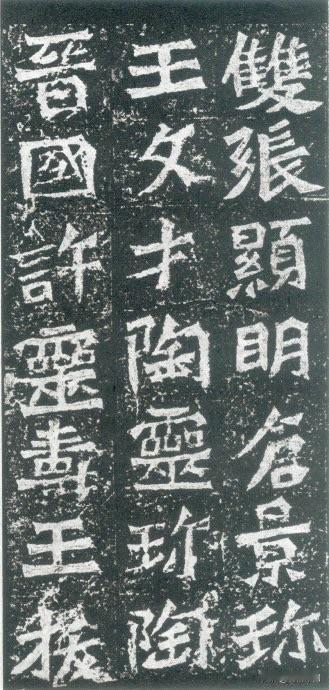 雙張顯明倉景珎
王文才陶靈珎陶
晉國許靈壽王拔